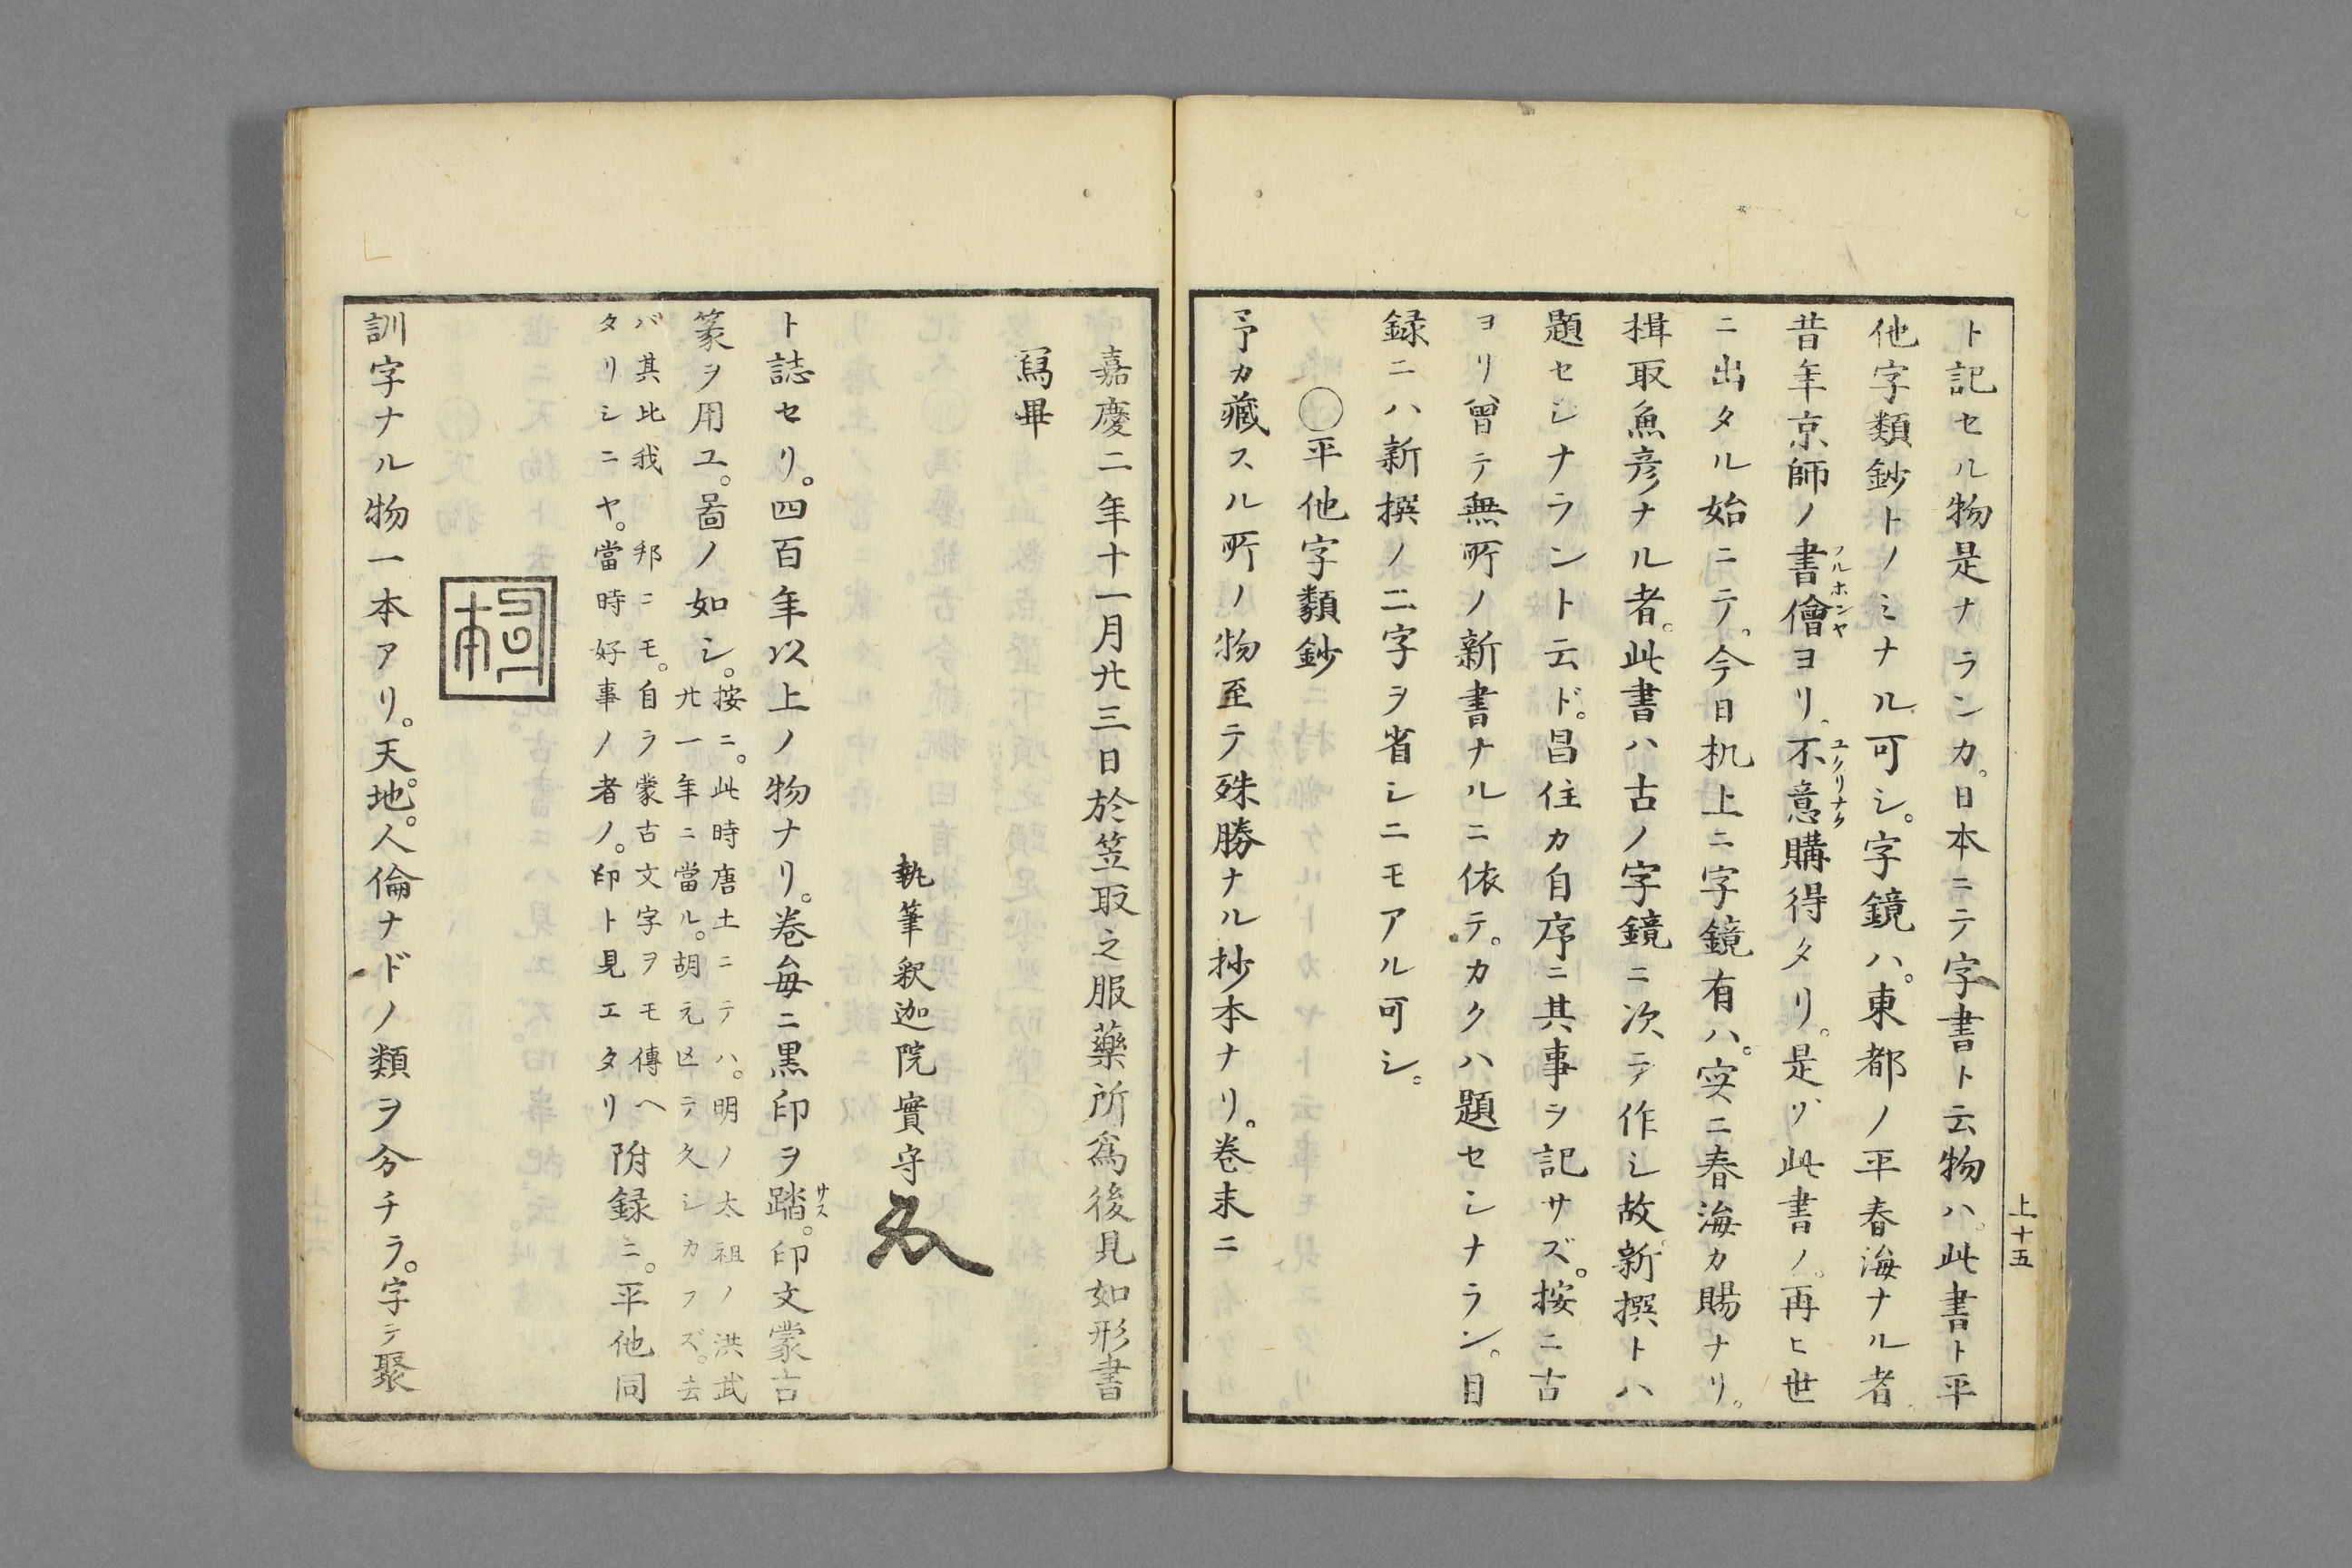 ト記セル物是ナランカ。日本ニテ字書ト云物ハ。此書ト平
他字類鈔トノミナル可シ。字鏡ハ。東都ノ平春海ナル者
昔年京師ノ書儈フルホンヤヨリ。不意ユクリナク購得タリ。是ゾ此書ノ。再ヒ世
ニ出タル始ニテ。今日机上ニ字鏡有ハ。実ニ春海カ賜ナリ。
揖取魚彦ナル者。此書ハ古ノ字鏡ニ次テ作シ故新撰トハ
題セシナラント云ド。昌住カ自序ニ其事ヲ記サズ。按ニ古
ヨリ曾テ無所ノ新書ナルニ依テ。カクハ題セシナラン。目
録ニハ新撰ノ二字ヲ省シニモアル可シ。
〇平他字類鈔
予カ藏スル所ノ物至テ殊勝ナル抄本ナリ。巻末ニ
上十五
嘉慶二年十一月廿三日於笠取之服藥所爲後見如形書
寫畢
執筆釈迦院實守
ト誌セリ。四百年以上ノ物ナリ。巻毎ニ黒印ヲ踏サス。印文蒙古
篆ヲ用ユ。啚ノ如シ。按ニ。此時唐土ニテハ。明ノ太祖ノ洪武
廿一年ニ當ル。胡元亡テ久シカラズ。去
バ其比我邦ニモ。自ラ蒙古文字ヲモ傳ヘ
タリシニヤ。當時好事ノ者ノ。印ト見エタリ
附録ニ。平他同
訓字ナル物一本アリ。天地。人倫ナドノ類ヲ分チラ。字テ聚